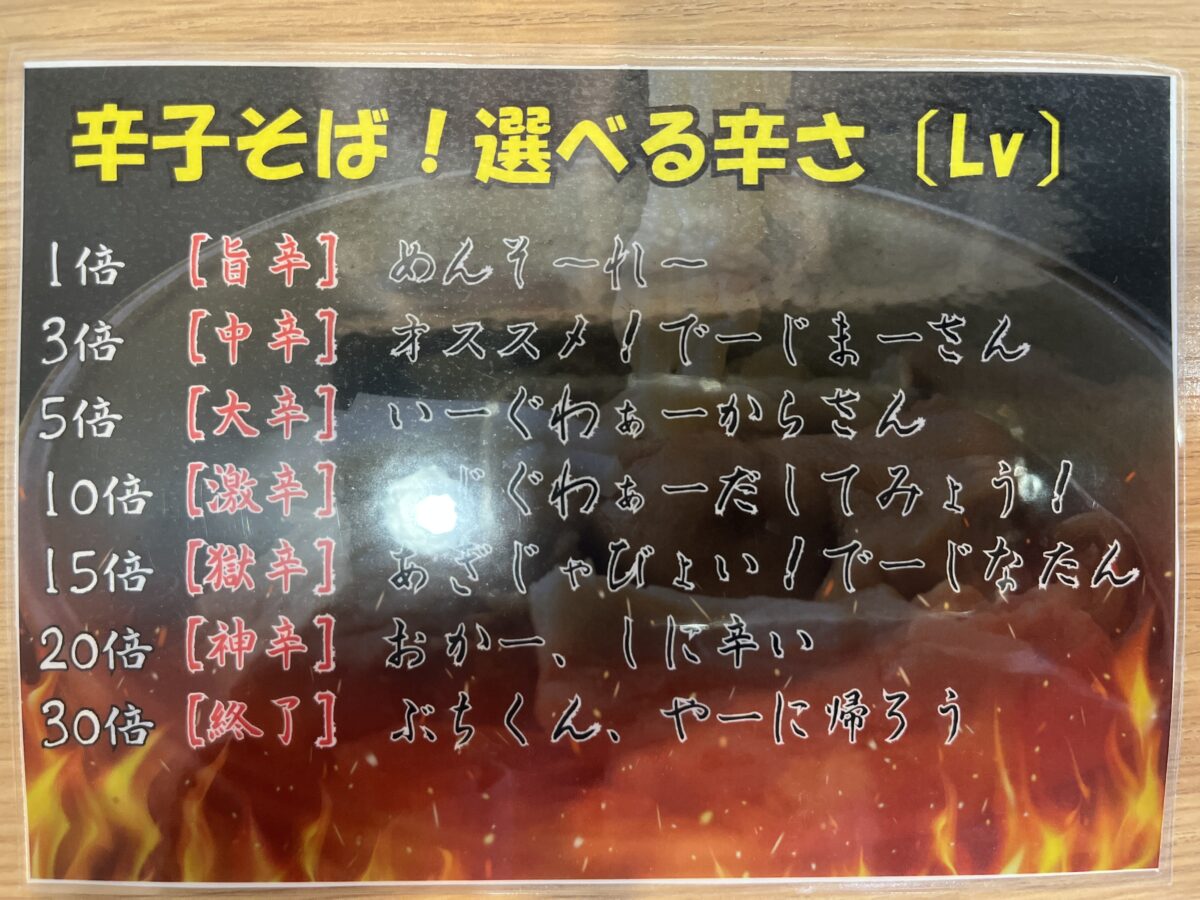 辛子そば！選べる辛さ〔Lv〕
1倍 [旨辛] めんそ～れ～
3倍 [中辛] オススメ！でーじまーさん
5倍 [大辛] いーぐわぁーからさん
10倍 [激辛] じぐわぁーだしてみょう！
15倍 [獄辛] あぎじゃびょい！でーじなたん
20倍 [神辛] おかー、しに辛い
30倍 [終了] ぶちくん、やーに帰ろう